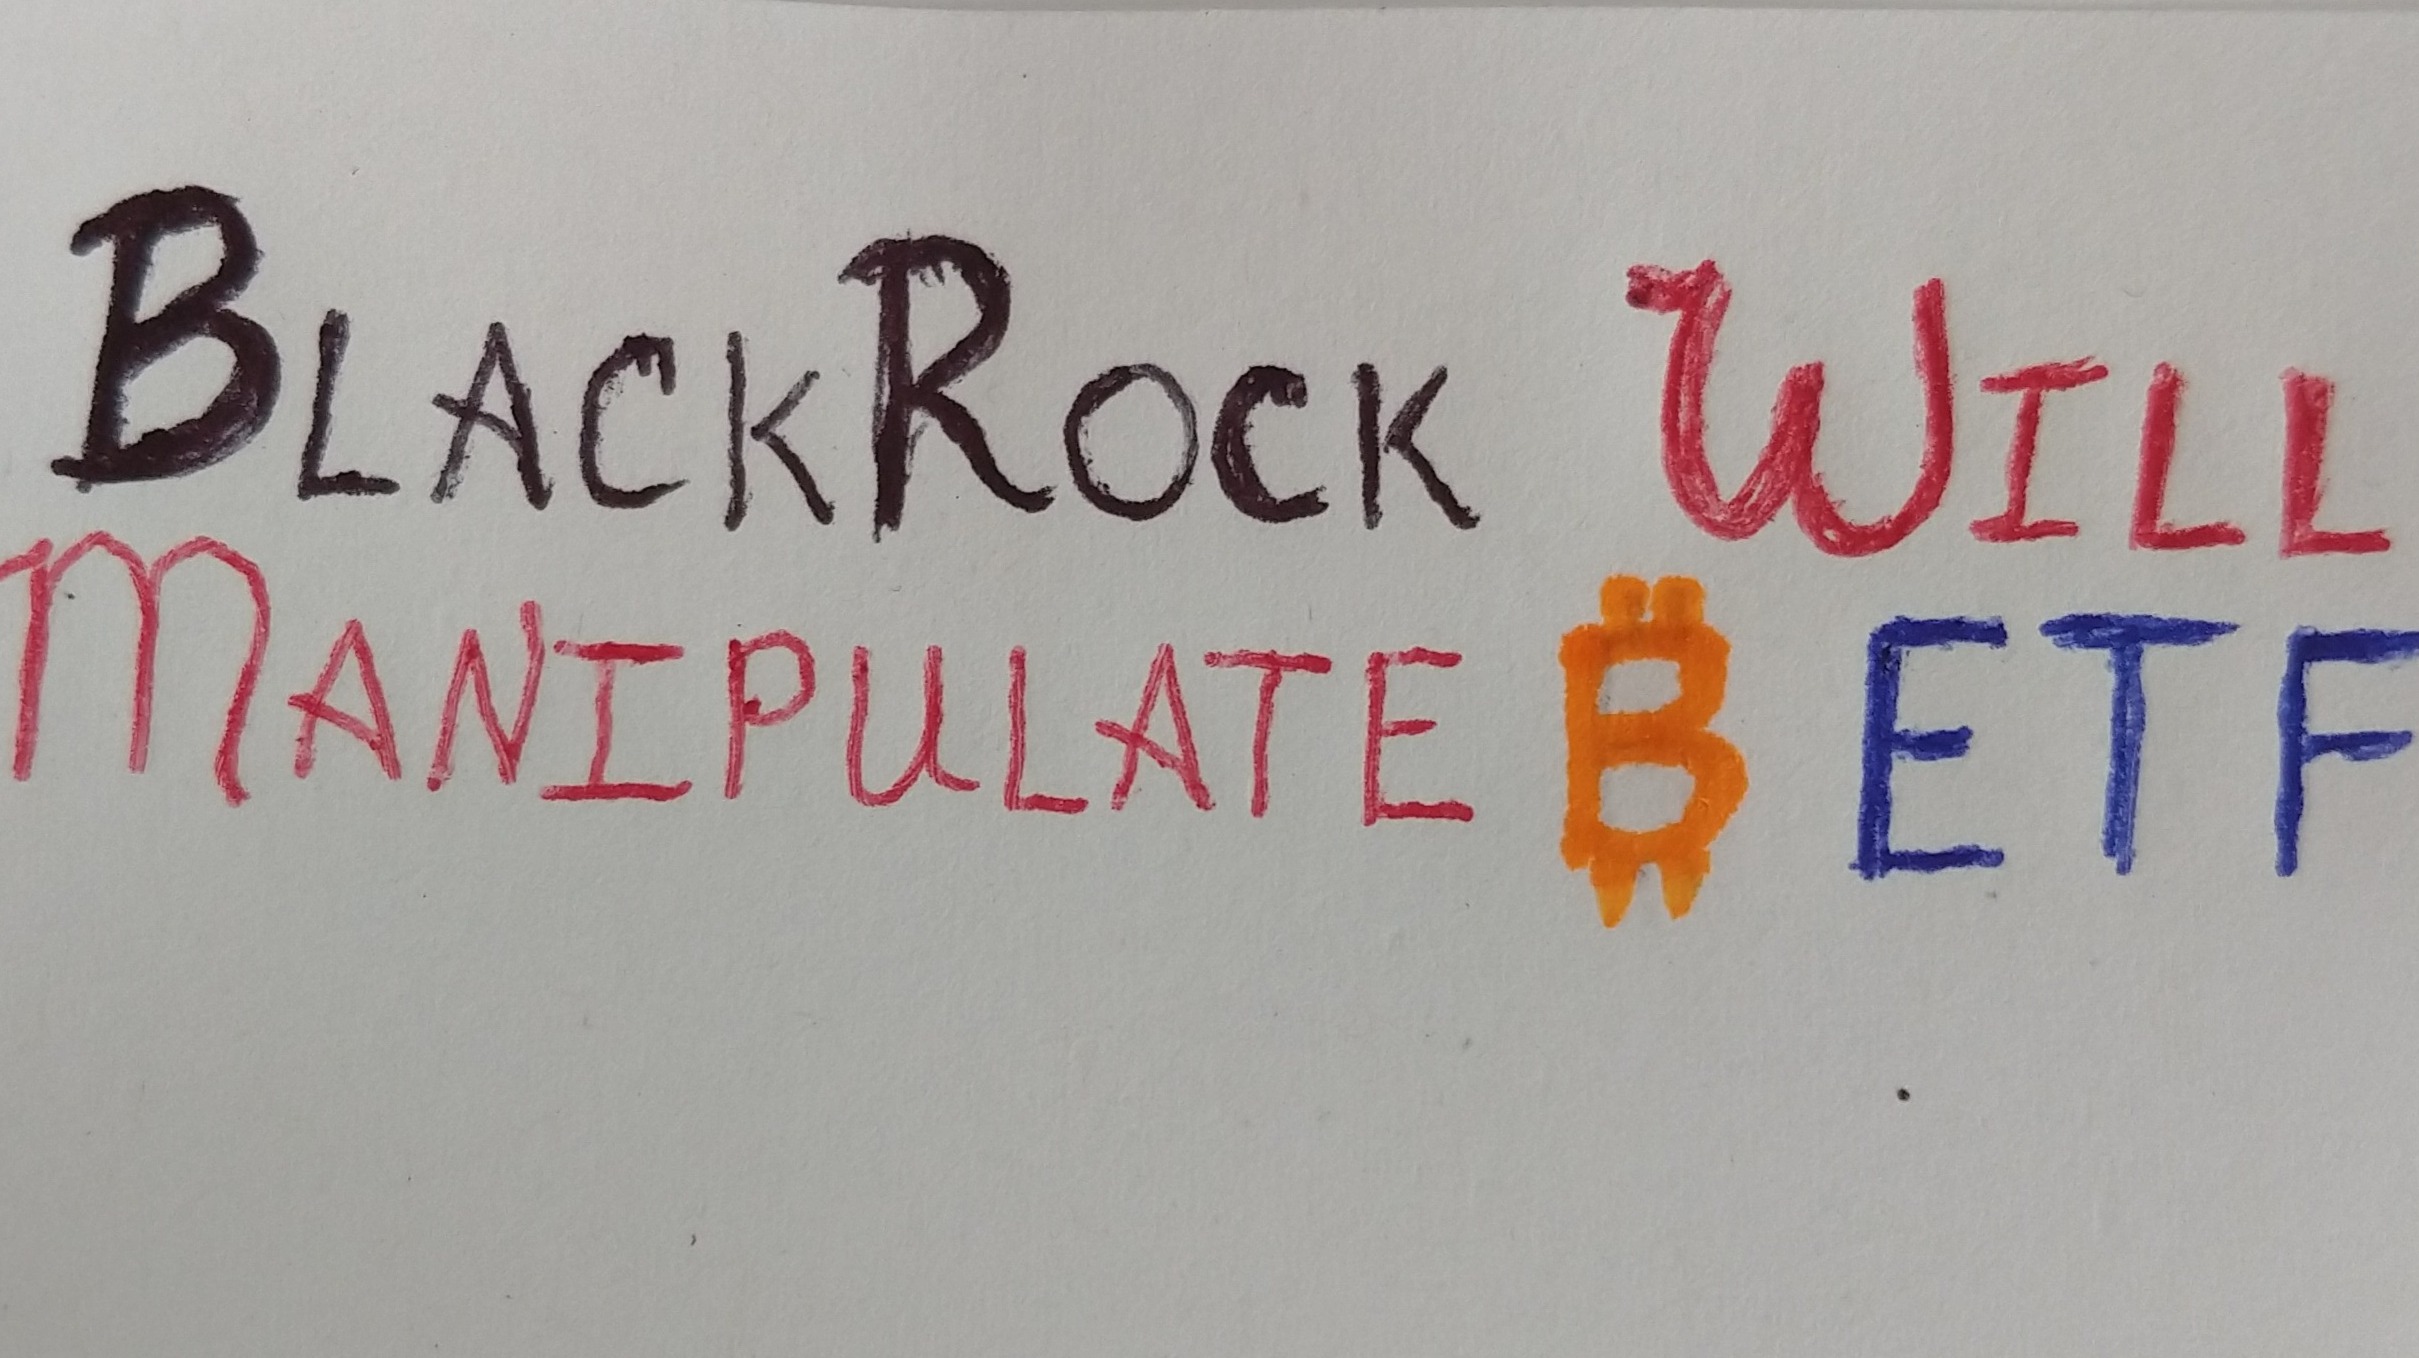 BLACKROCK WILL
MANIPULATE ₿ ETF